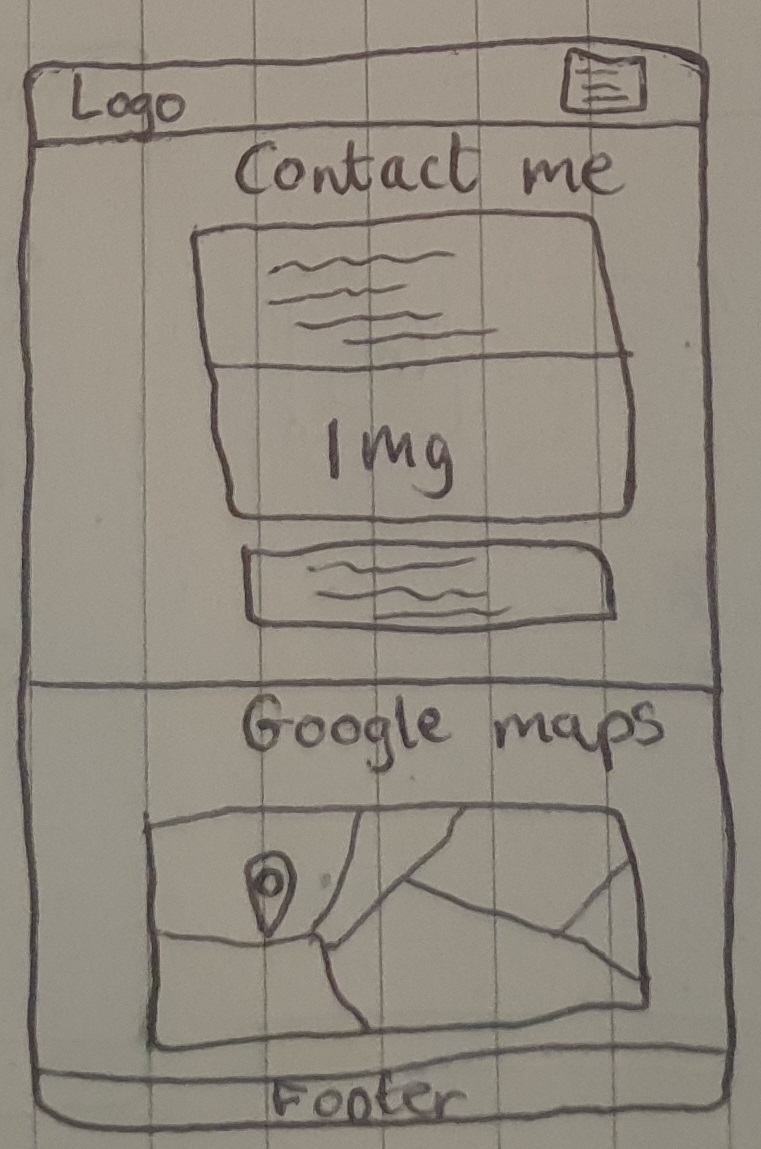 Logo
Contact me
Img
Google maps
Footer